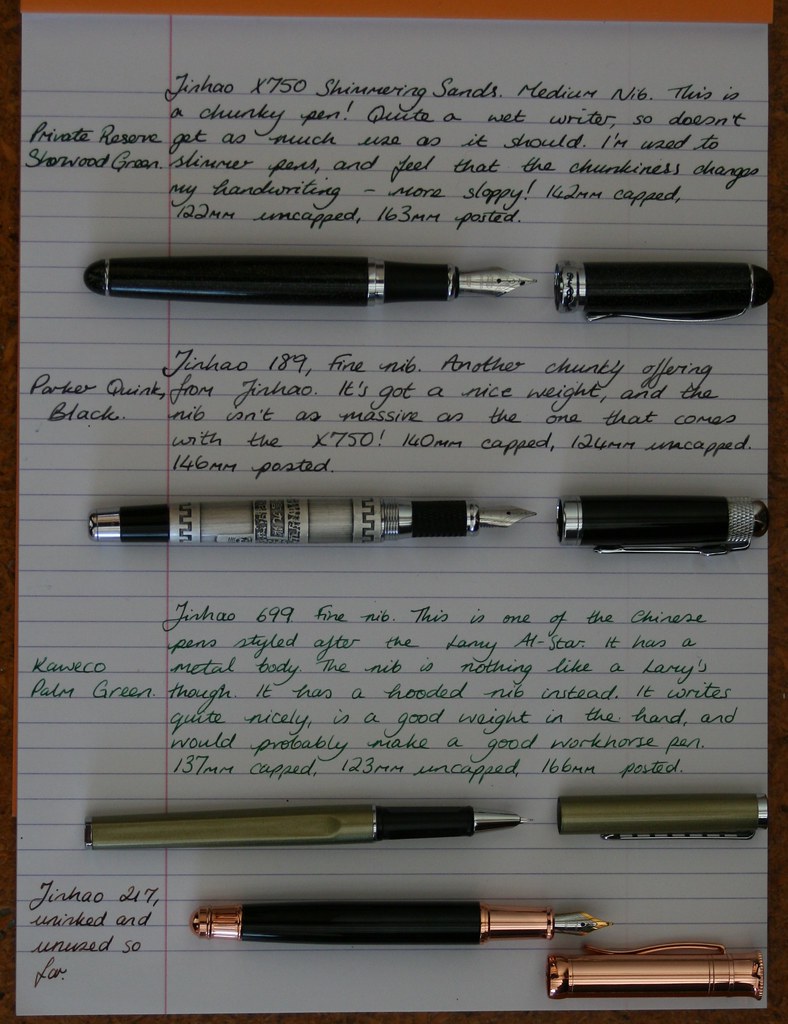 Jinhao X750 Shimmering Sands. Medium Nib. This is
a chunky pen! Quite a wet writer, so doesn't
Private Reserve
get as much use as it should. I'm used to
Sherwood Green.
slimmer pens, and feel that the chunkiness changes
my handwriting - more sloppy! 142mm capped,
122mm uncapped, 163mm posted.
Jinhao 189, Fine nib. Another chunky offering
Parker Quink,
from Jinhao. It's got a nice weight, and the
Black.
nib isn't as massive as the one that comes
with the X750! 140mm capped, 124mm uncapped.
146mm posted.
Jinhao 699. Fine nib. This is one of the Chinese
pens styled after the Lamy Al-Star. It has a
Kaweco
metal body. The nib is nothing like a Lamy's
Palm Green.
though. It has a hooded nib instead. It writes
quite nicely, is a good weight in the hand, and
would probably make a good workhorse pen.
137mm capped, 123mm uncapped, 166mm posted.
Jinhao 217,
uninked and
unused so
far.